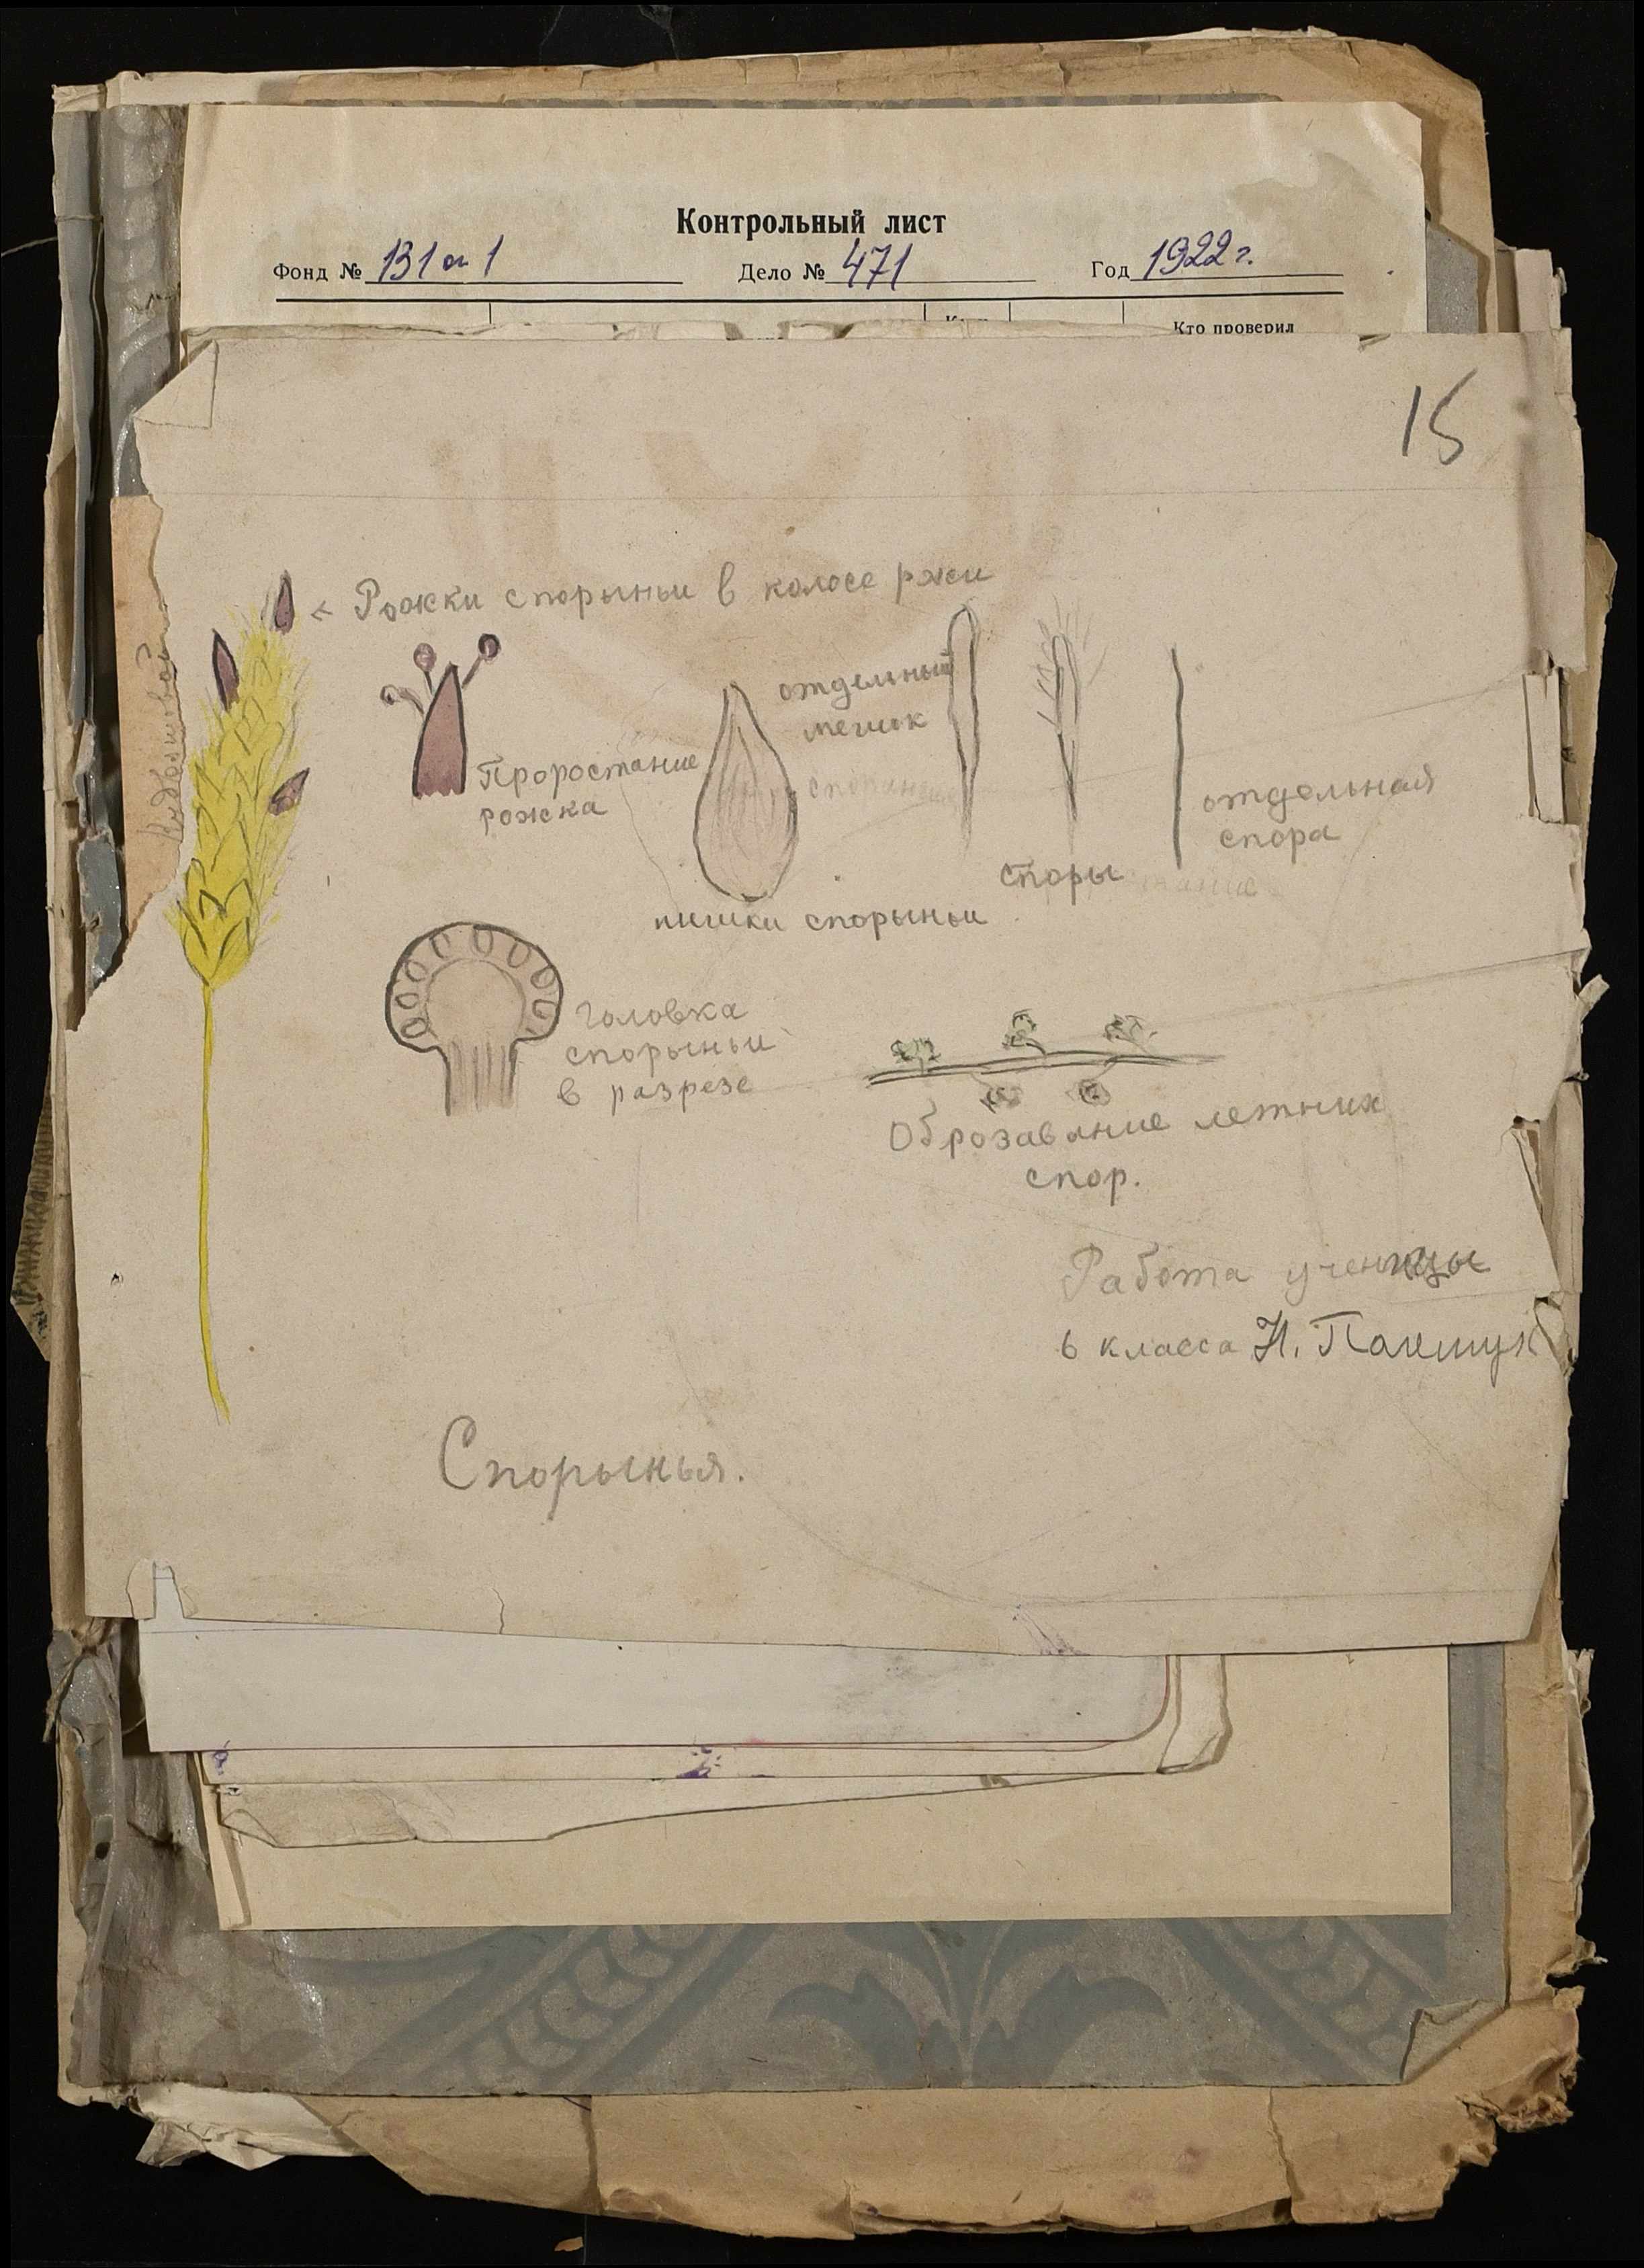 Контрольный лист
Фонд № 131 оп 1 Дело № 471 Год 1922 г.
Кто проверил
15
< Рожки спорыньи в колосе ржи
Проростание
рожка
отдельный
мешок
споры
отдельная
спора
спорыньи
головка
спорыньи
в разрезе
Оброзавание летних
спор.
Работа ученицы
6 класса Н.
Спорынья.